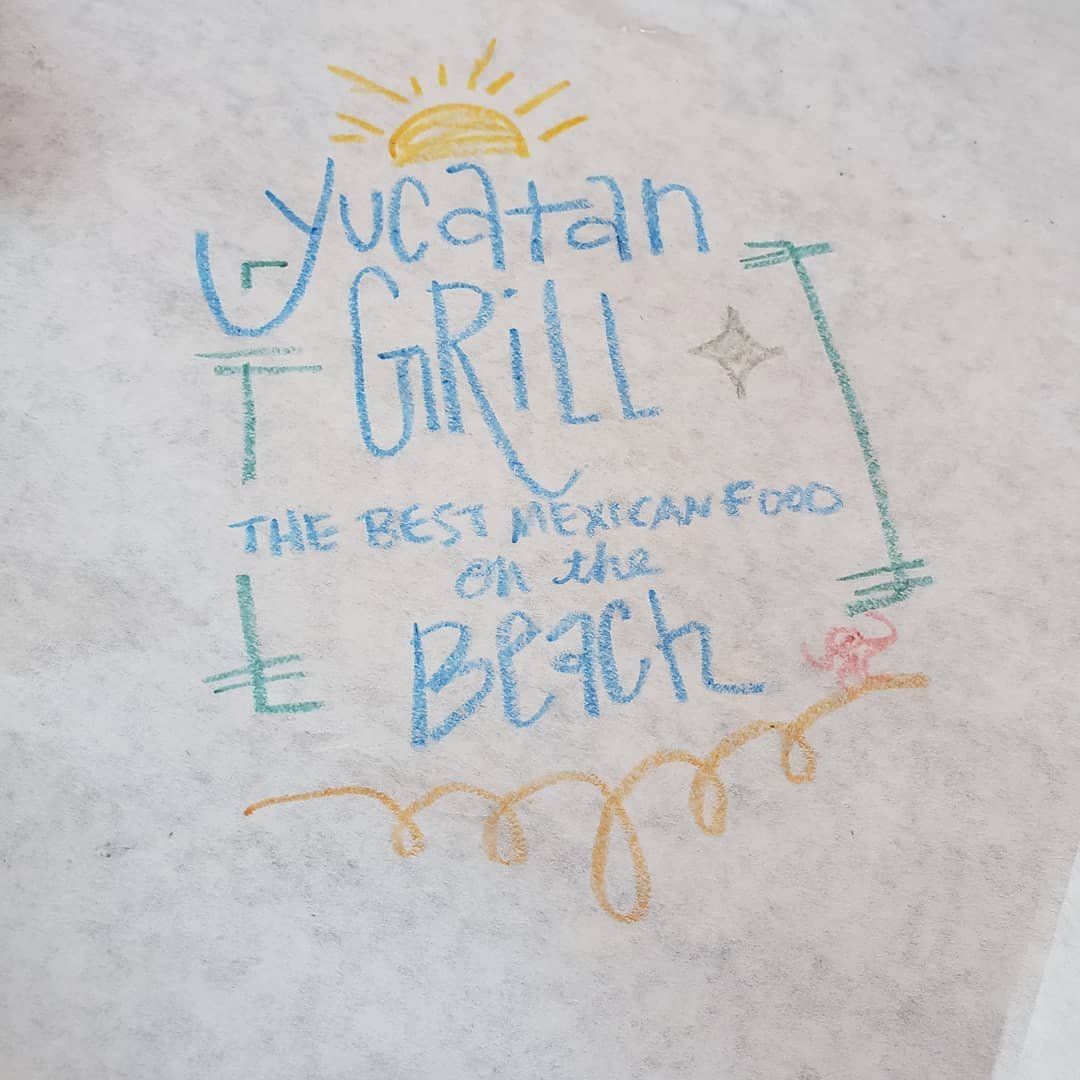 Yucatan
GRiLL
THE BEST MEXICAN FOOD
on the
Beach